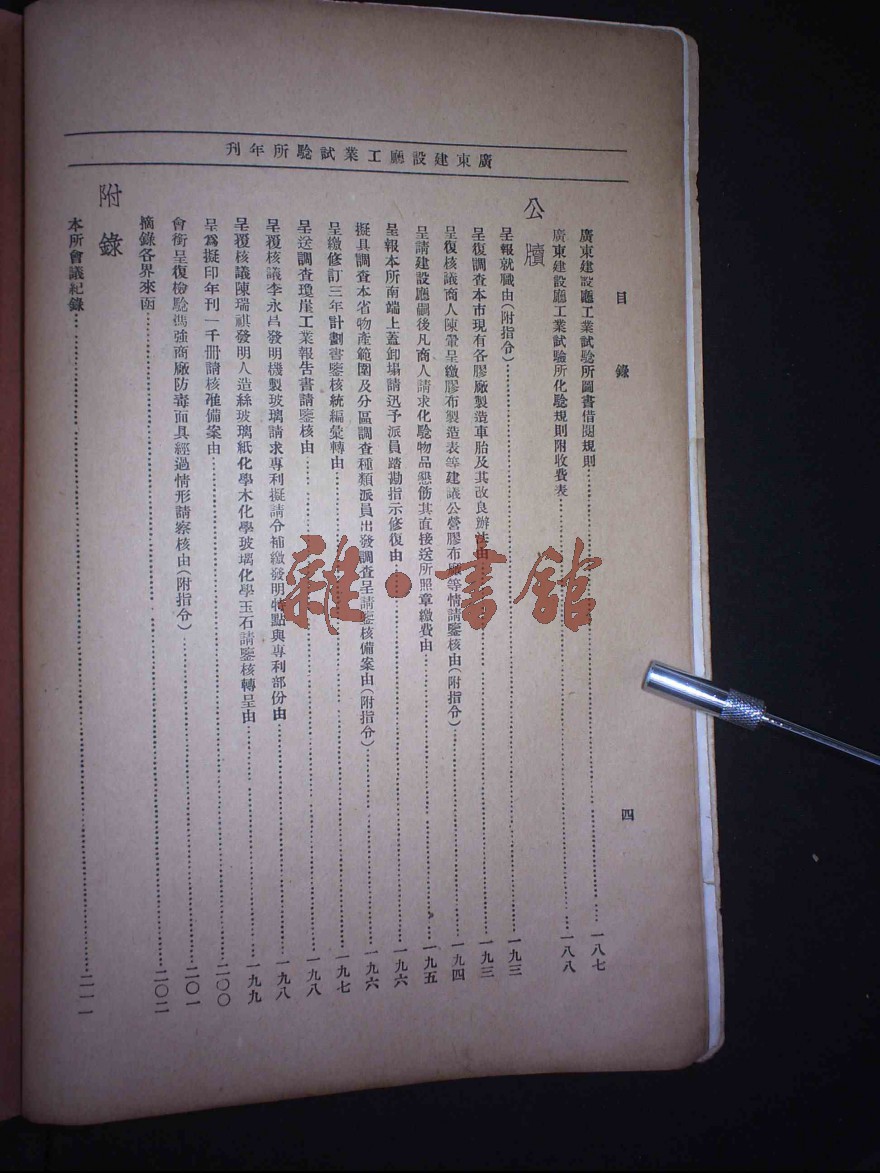 廣東建設廳工業試驗所年刊
目錄
四
廣東建設廳工業試驗所圖書借閱規則……一八七
廣東建設廳工業試驗所化驗規則附收費表……一八八
公牘
呈報就職由(附指令)……一九三
呈復調查本市現有各膠廠製造車胎及其改良辦法由……一九三
呈復核議商人陳㬎呈繳膠布製造表等建議公營膠布廠等情請鑒核由(附指令)……一九四
呈請建設廳嗣後凡商人請求化驗物品懇飭其直接送所照章繳費由……一九五
呈報本所南端上蓋卸塌請迅予派員踏勘指示修復由……一九六
擬具調查本省物產範圍及分區調查種類派員出發調查呈請鑒核備案由(附指令)……一九六
呈繳修訂三年計劃書鑒核統編彙轉由……一九七
呈送調查瓊崖工業報告書請鑒核由……一九八
呈覆核議李永昌發明機製玻璃請求專利擬請令補繳發明特點與專利部份由……一九八
呈覆核議陳瑞祺發明人造絲玻璃紙化學木化學玻璃化學玉石請鑒核轉呈由……一九九
呈爲擬印年刊一千冊請核准備案由……二〇〇
會銜呈復檢驗馮強商廠防毒面具經過情形請察核由(附指令)……二〇一
摘錄各界來函……二〇二
附錄
本所會議紀錄……二一一
雜·書館